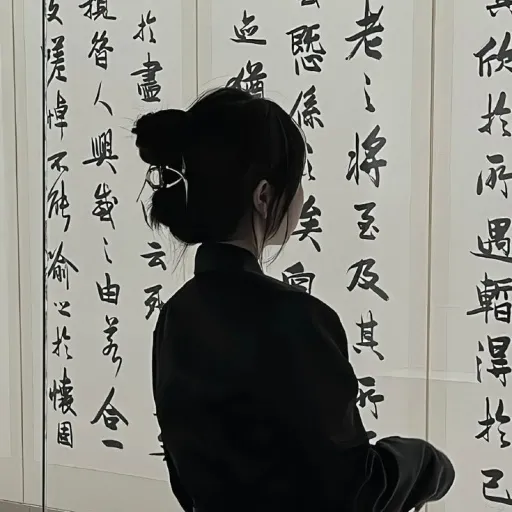 欣於所遇暫得於己
老之將至及其所
係之矣向
迹猶
於盡云死
昔人興感之由若合一
嗟悼不能喻之於懷固